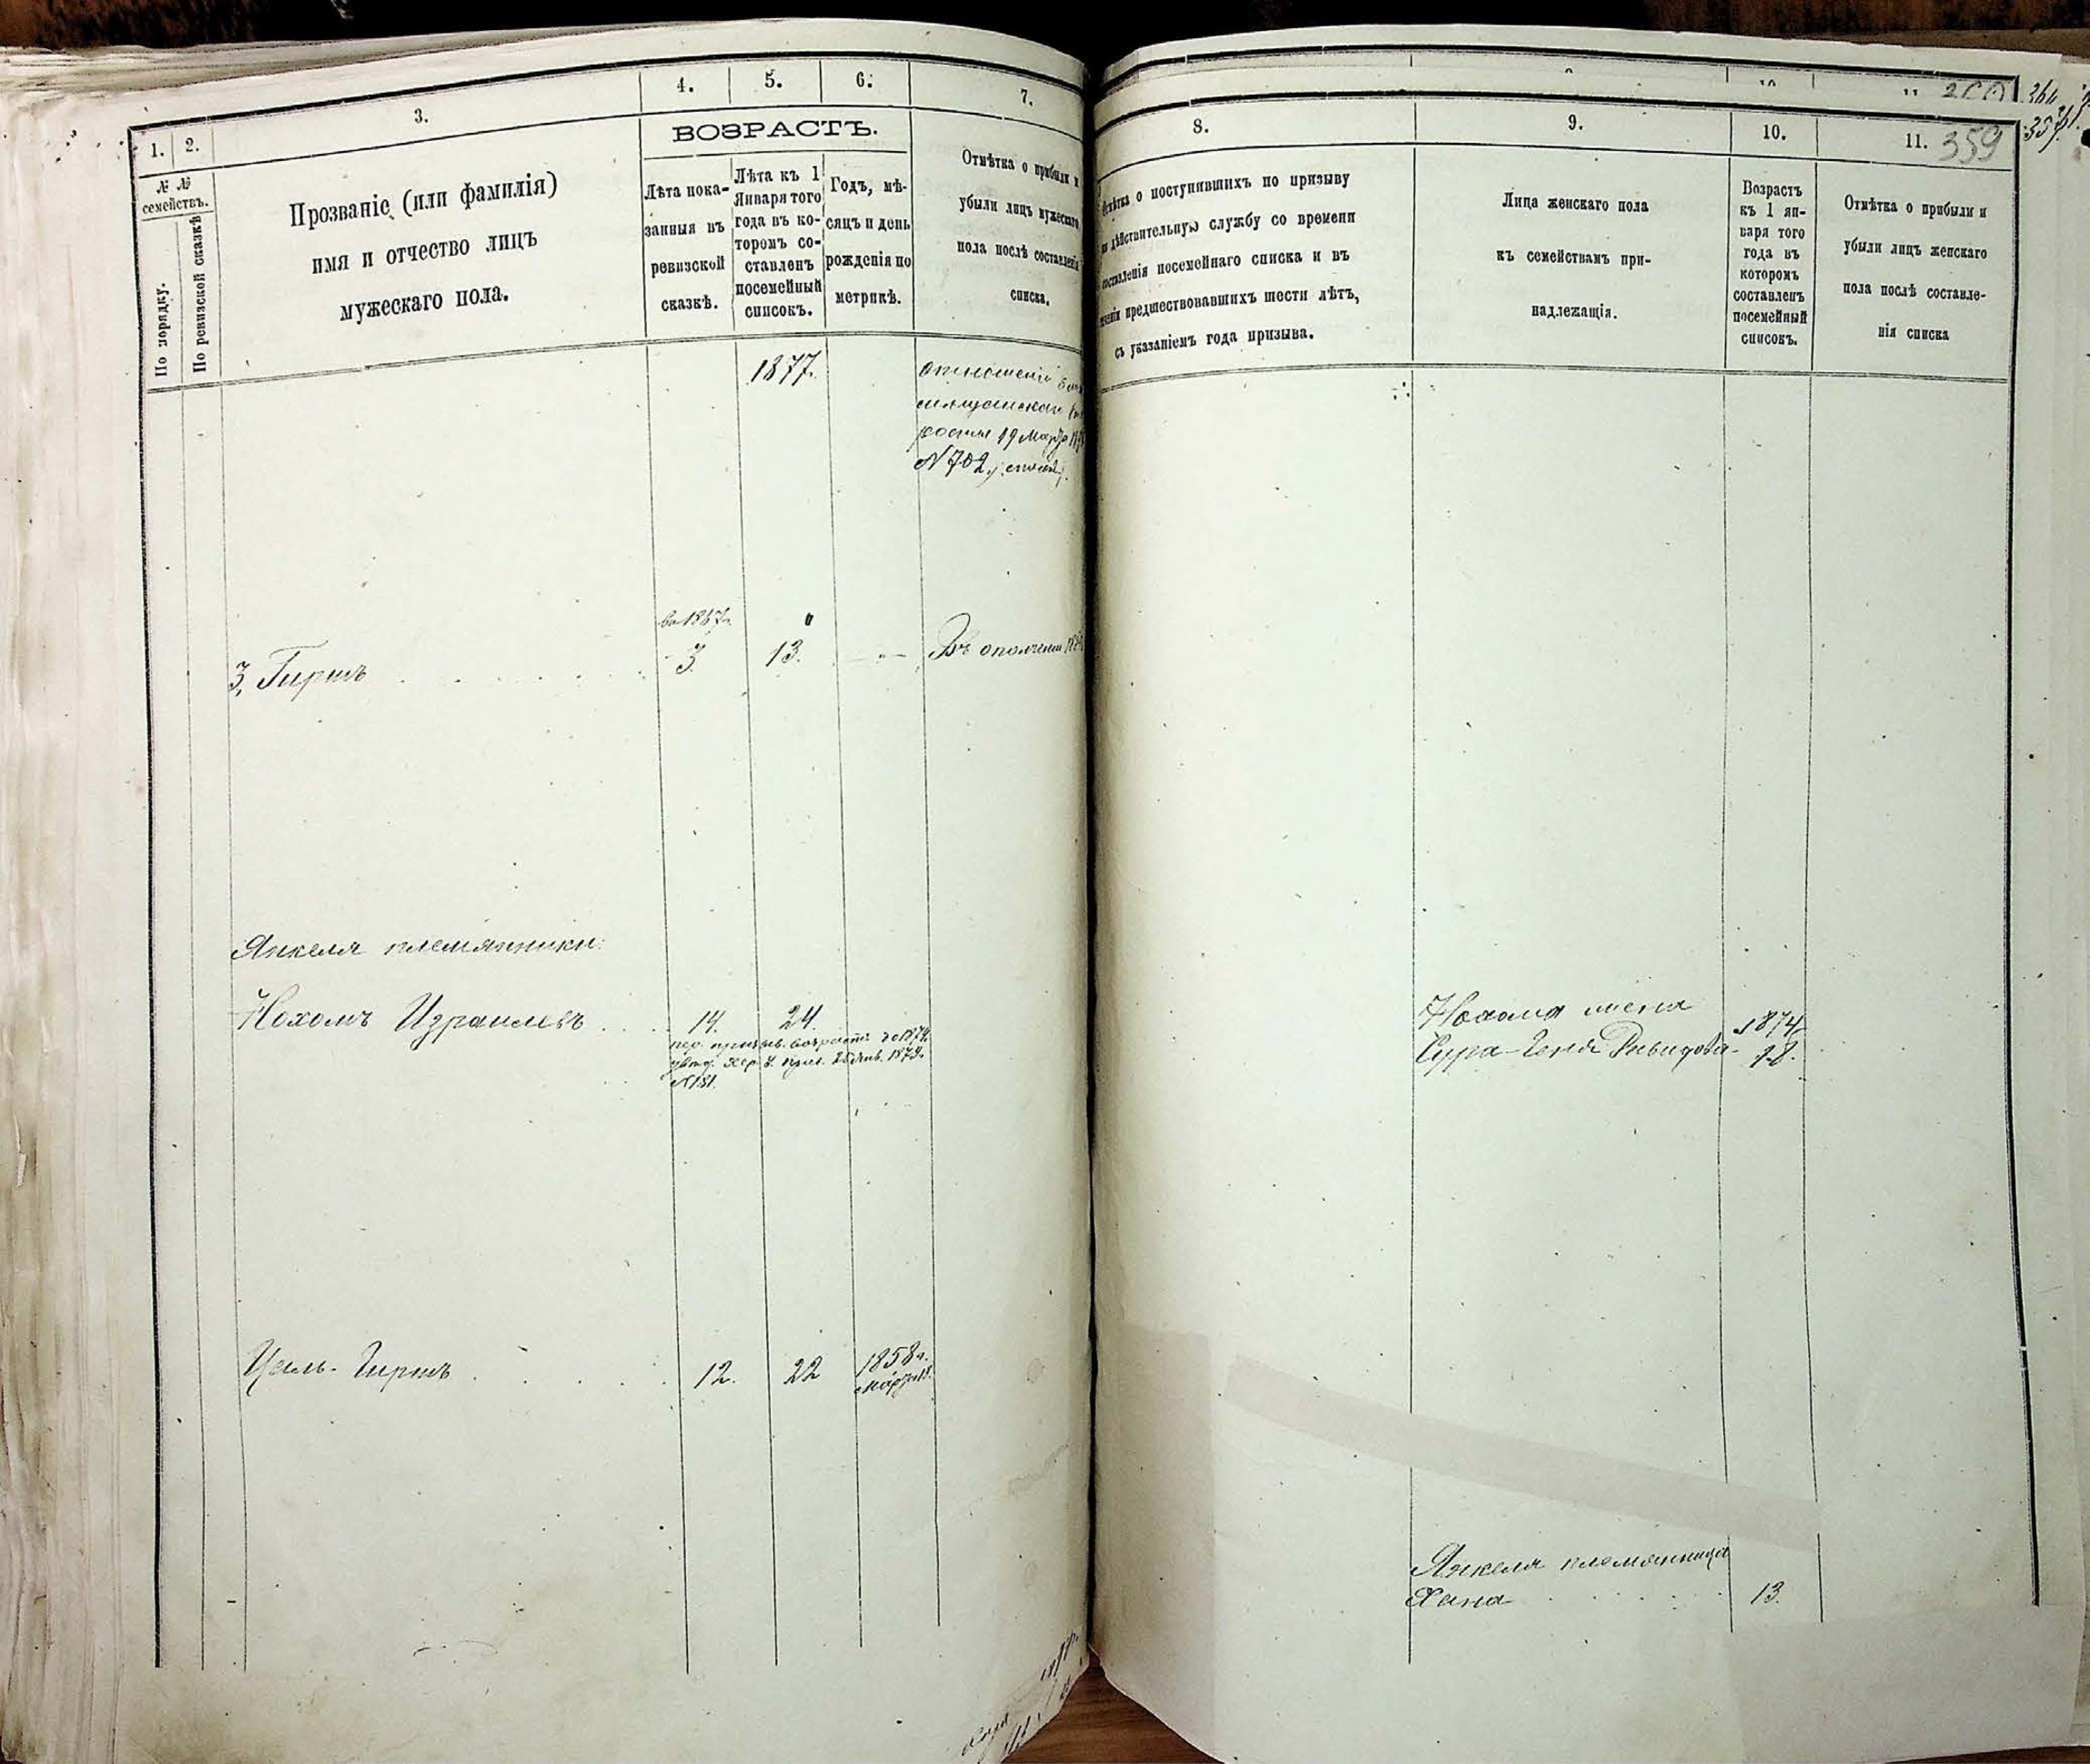 1.
2.
3.
4.
5.
6.
7.
№ №
семействъ.
По порядку.
По ревизской сказкѣ
Прозваніе (или фамилія)
имя и отчество лицъ
мужескаго пола.
ВОЗРАСТЪ.
Лѣта пока-
занныя въ
ревизской
сказкѣ.
Лѣта къ 1
Января того
года въ ко-
торомъ со-
ставленъ
посемейный
списокъ.
Годъ, мѣ-
сяцъ и день
рожденія по
метрикѣ.
Отмѣтка о прибыли и
убыли лицъ мужескаго
пола послѣ составленія
списка.
1877.
отношеніе
19 Марта
N 702
во 1867 г.
3, Гиршъ
3.
13.
Въ ополченіи
Янкеля племянники:
Нохомъ Израилевъ
14.
24.
N 181.
Цаль-Гиршъ
12.
22
1858 г.
Марта 18.
8.
9.
10.
11.
359
о поступившихъ по призыву
дѣйствительную службу со времени
составленія посемейнаго списка и въ
предшествовавшихъ шести лѣтъ,
съ указаніемъ года призыва.
Лица женскаго пола
къ семействамъ при-
надлежащія.
Возрастъ
къ 1 ян-
варя того
года въ
которомъ
составленъ
посемейный
списокъ.
Отмѣтка о прибыли и
убыли лицъ женскаго
пола послѣ составле-
нія списка
Нохома жена
Сура-Геня Давидова
1874
18.
Янкеля племянница
Хана
13.